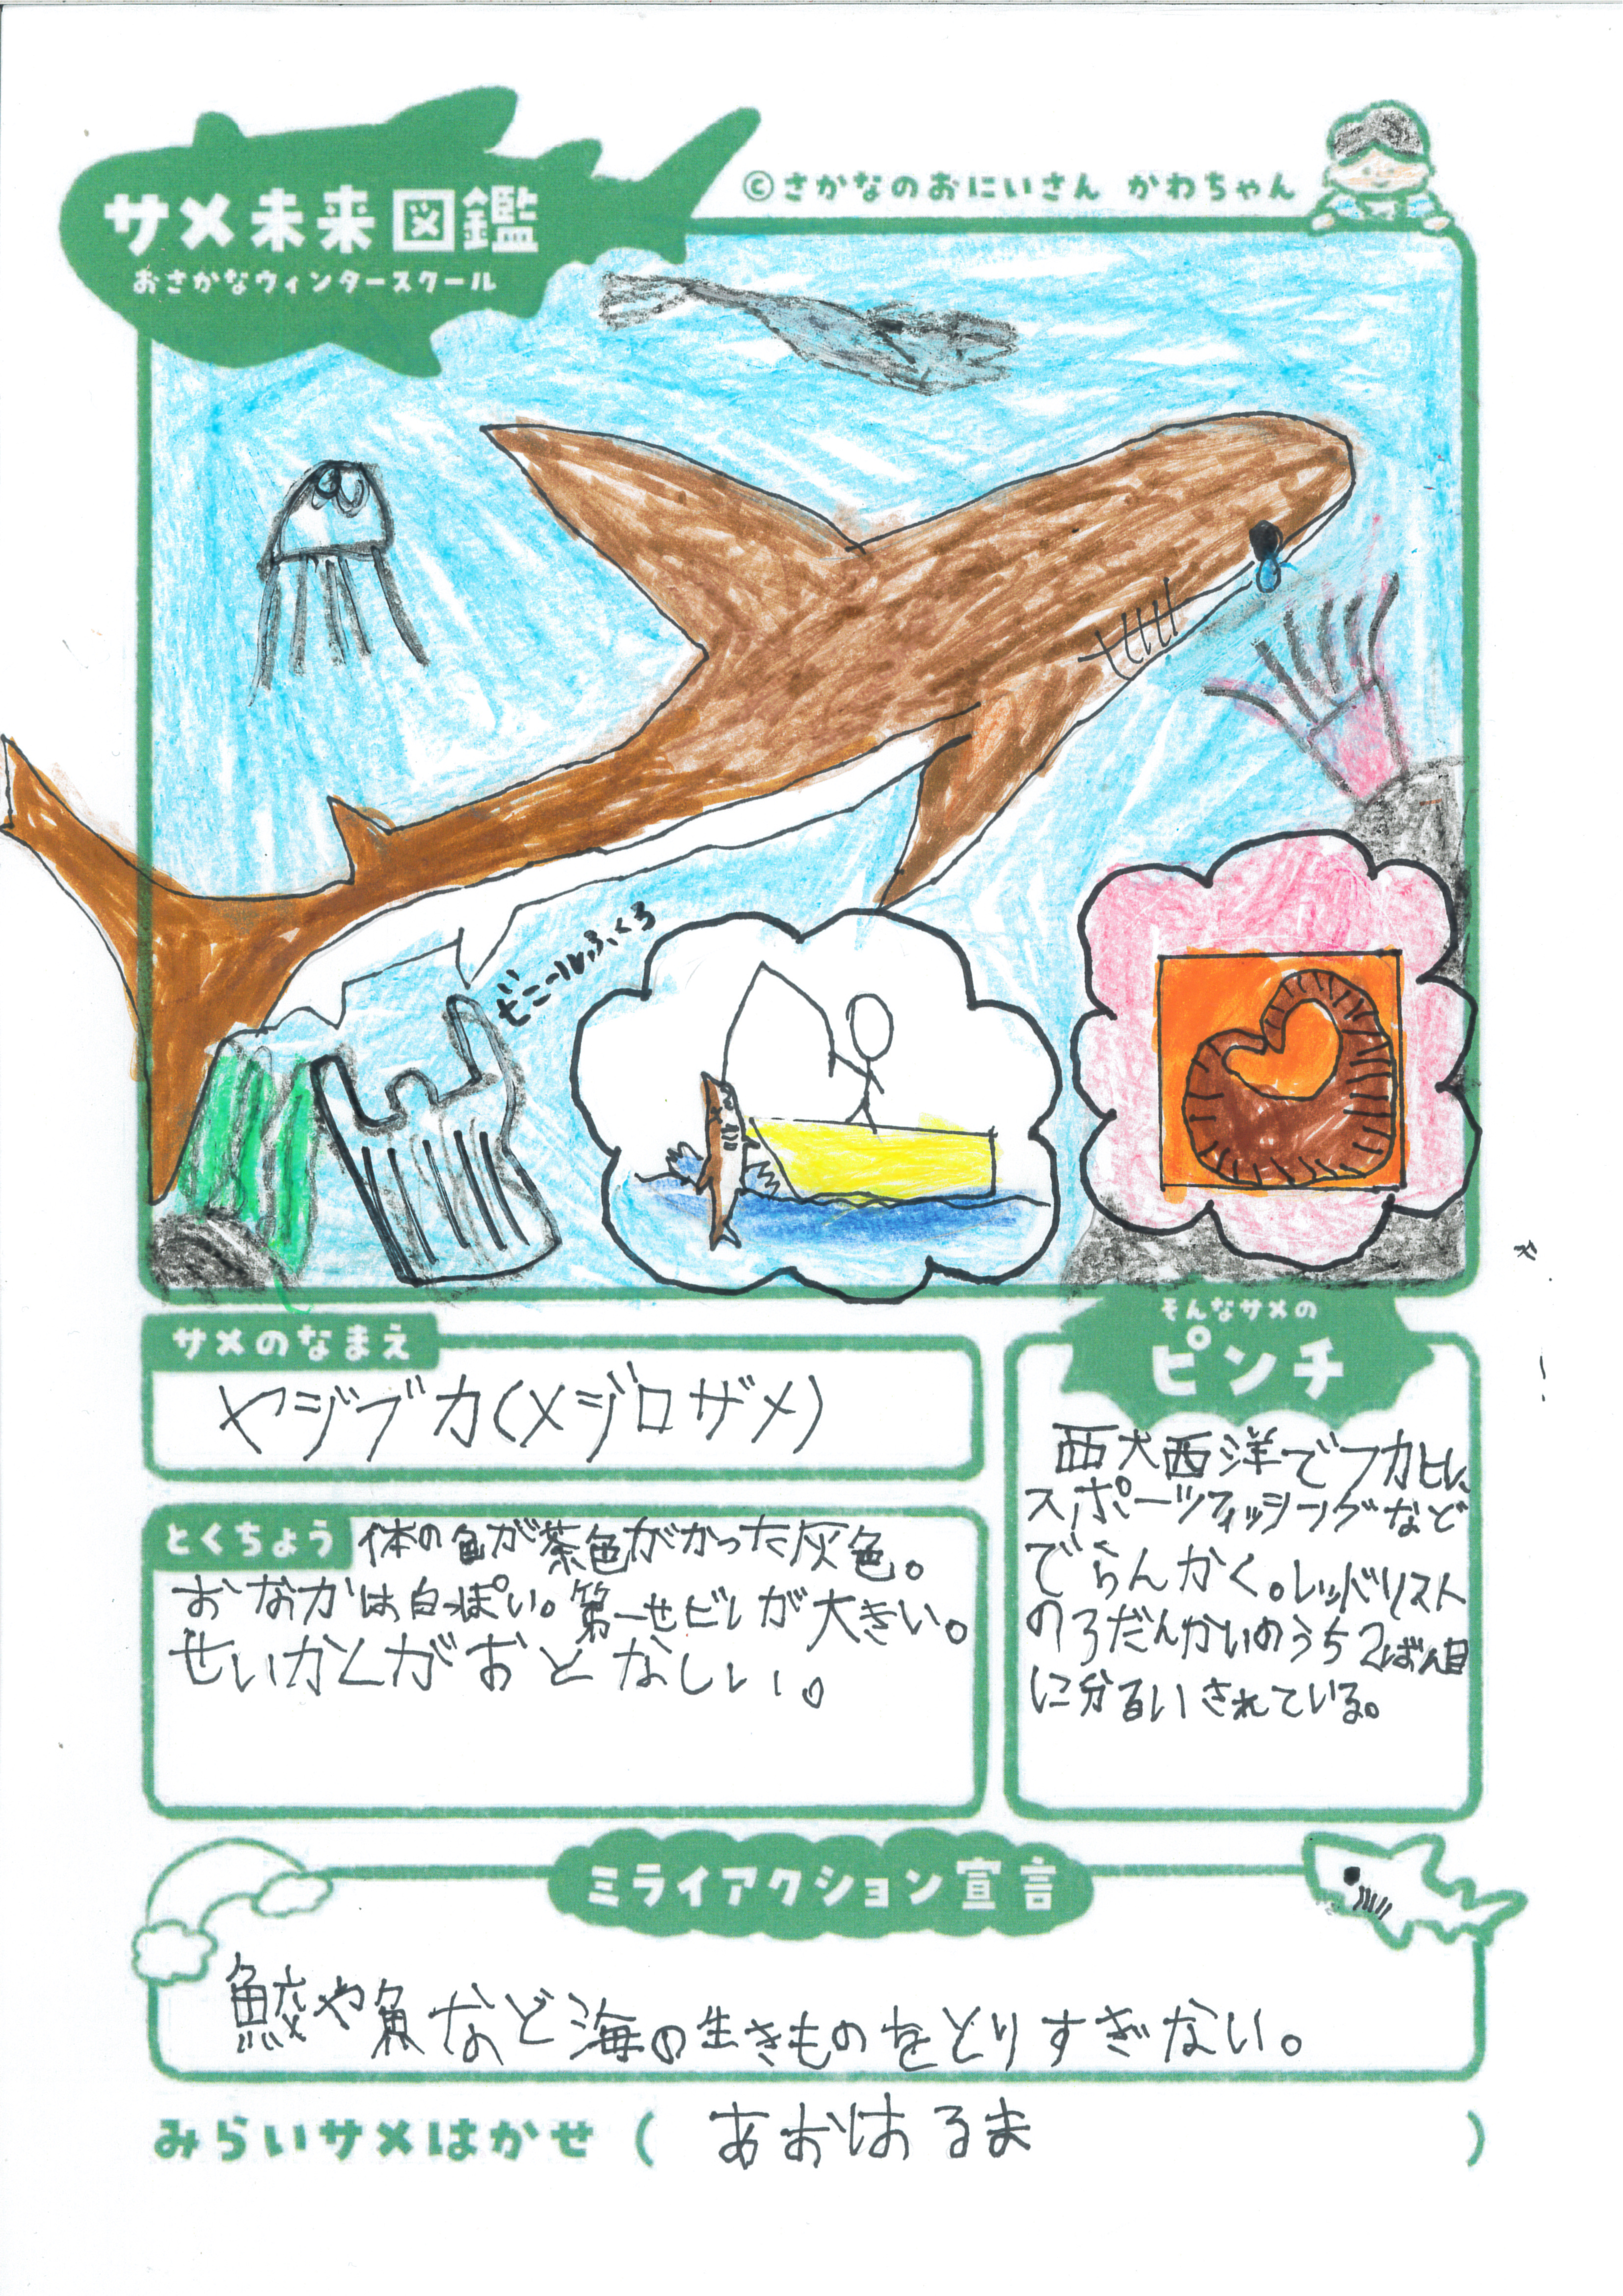 サメ未来図鑑
おさかなウィンタースクール
©さかなのおにいさん かわちゃん
ビニールぶくろ
サメのなまえ
ヤジブカ(メジロザメ)
とくちょう
体の色が茶色がかった灰色。
おなかは白っぽい。第一せビレが大きい。
せいかくがおとなしい。
そんなサメの
ピンチ
西大西洋でフカヒレ、
スポーツフィッシングなど
でらんかく。レッドリスト
の3だんかいのうち2ばん目
に分るいされている。
ミライアクション宣言
鮫や魚など海の生きものをとりすぎない。
みらいサメはかせ ( あおはるま )